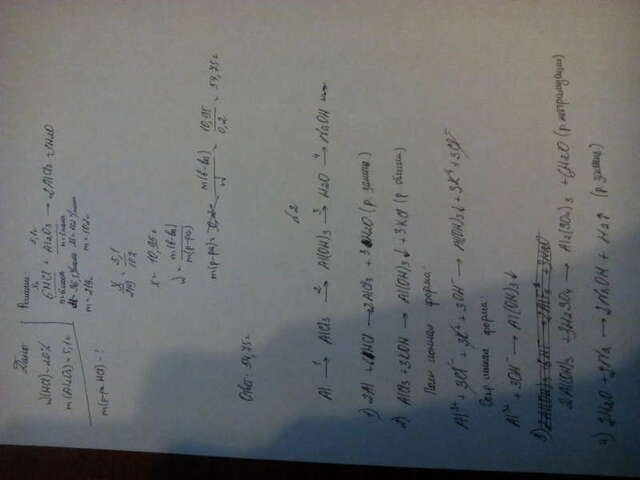 Дано:
W(HCl)=20%
m(Al2O3)=5,1г
m(р-ра HCl)=?
Решение:
x 5,1г
6HCl + Al2O3 → 2AlCl3 + 3H2O
m=219г m=102г
x/219 = 5,1/102
x = 10,95г
W = m(в-ва)/m(р-ра)
m(р-ра) = m(в-ва)/W = 10,95/0,2 = 54,75г
Ответ: 54,75г.
№2
Al 1→ AlCl3 2→ Al(OH)3 3→ H2O 4→ NaOH
1) 2Al + 6HCl → 2AlCl3 + 3H2O (р. замещ)
2) AlCl3 + 3KOH → Al(OH)3↓ + 3KCl (р. обмен)
Полн ионная форма:
Al3+ + 3Cl- + 3K+ + 3OH- → Al(OH)3↓ + 3K+ + 3Cl-
Сокр. ионная форма:
Al3+ + 3OH- → Al(OH)3↓
3)
2Al(OH)3 + 3H2SO4 → Al2(SO4)3 + 6H2O (р. нейтрализации)
4) 2H2O + 2Na → 2NaOH + H2↑ (р. замещ.)